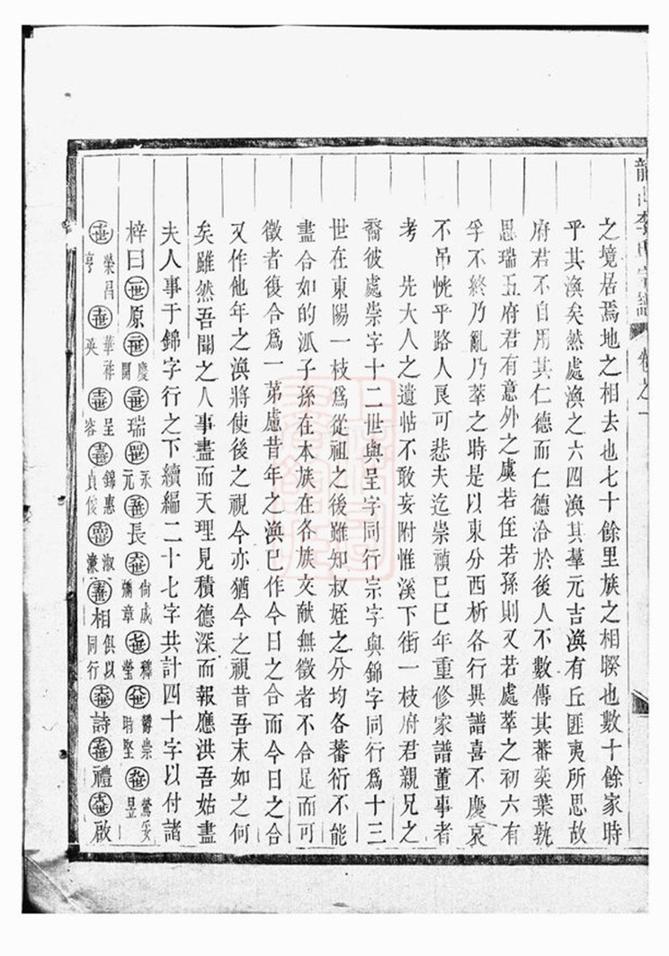 龍山李氏宗譜 卷之一
之境居焉地之相去也七十餘里族之相暌也數十餘家時
乎其渙矣然處渙之六四渙其羣元吉渙有丘匪夷所思故
府君不自用其仁德而仁德洽於後人不數傳其蕃奕葉孰
思瑞五府君有意外之虞若侄若孫則又若處萃之初六有
孚不終乃亂乃萃之時是以東分西析各行異譜喜不慶哀
不吊恍乎路人良可悲夫迄崇禎巳巳年重修家譜董事者
考 先大人之遺帖不敢妄附惟溪下街一枝府君親兄之
裔彼處崇字十二世與呈字同行宗字與錦字同行爲十三
世在東陽一枝爲從祖之後雖知叔姪之分均各蕃衍不能
盡合如的派子孫在本族在各族文献無徵者不合足而可
徵者復合爲一第慮昔年之渙已作今日之合而今日之合
又作他年之渙將使後之視今亦猶今之視昔吾末如之何
矣雖然吾聞之人事盡而天理見積德深而報應洪吾姑盡
夫人事于錦字行之下續編二十七字共計四十字以付諸
梓曰 原 慶開 瑞 永元 長 尙成 彌章 穉瑩 爵崇 時堅 鶯安 昱
榮昌 亨 華祥 英 呈 容 錦惠 貞俊 淑 濂 相 俱以 同行 詩 禮 啟